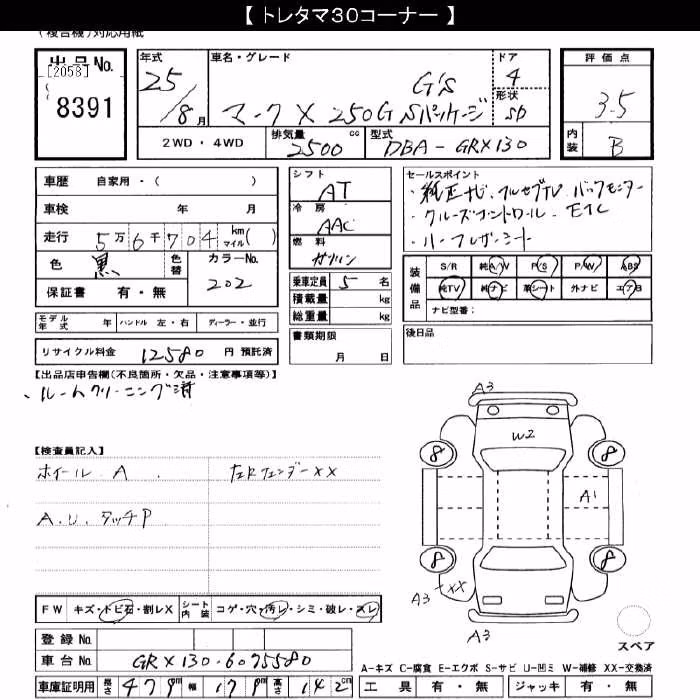 【 トレタマ30コーナー 】
(複合機)対応用紙
出品 No.
[2058]
8391
年式
25
/8月
車名・グレード
G's
マークX 250G Sパッケージ
ドア
4
形状
SD
評価点
3.5
内装
B
2WD・4WD
排気量
2500
cc
型式
DBA-GRX130
車歴 自家用・( )
車検 年 月
走行 5万6千704 km マイル( )
色 黒 色替 カラーNo. 202
保証書 有・無
シフト
AT
冷房
AAC
燃料
ガソリン
乗車定員 5 名
積載量 kg
総重量 kg
書類期限
月 日
セールスポイント
・純正ナビ、フルセグTV、バックモニター
・クルーズコントロール、ETC
・ハーフレザーシート
装備品
S/R 純A/W P/S P/W ABS
純TV 純ナビ 革シート 外ナビ エアB
ナビ型番:
後日品
モデル年式 年 ハンドル 左・右 ディーラー・並行
リサイクル料金 12580 円 預託済
【出品店申告欄(不良箇所・欠品・注意事項等)】
・ルームクリーニング済
【検査員記入】
ホイール A 左Rフェンダー XX
A.U. タッチP
A3
W2
8
8
A1
8
8
A3
XX
A3
スペア
FW キズ・トビ石・割レX シート内装 コゲ・穴・汚レ・シミ・破レ・スレ
登録 No.
車台 No. GRX130-6075580
車庫証明用 長さ 47 cm 幅 17 cm 高さ 142 cm
A-キズ C-腐食 E-エクボ S-サビ U-凹ミ W-補修 XX-交換済
工具 有・無 ジャッキ 有・無